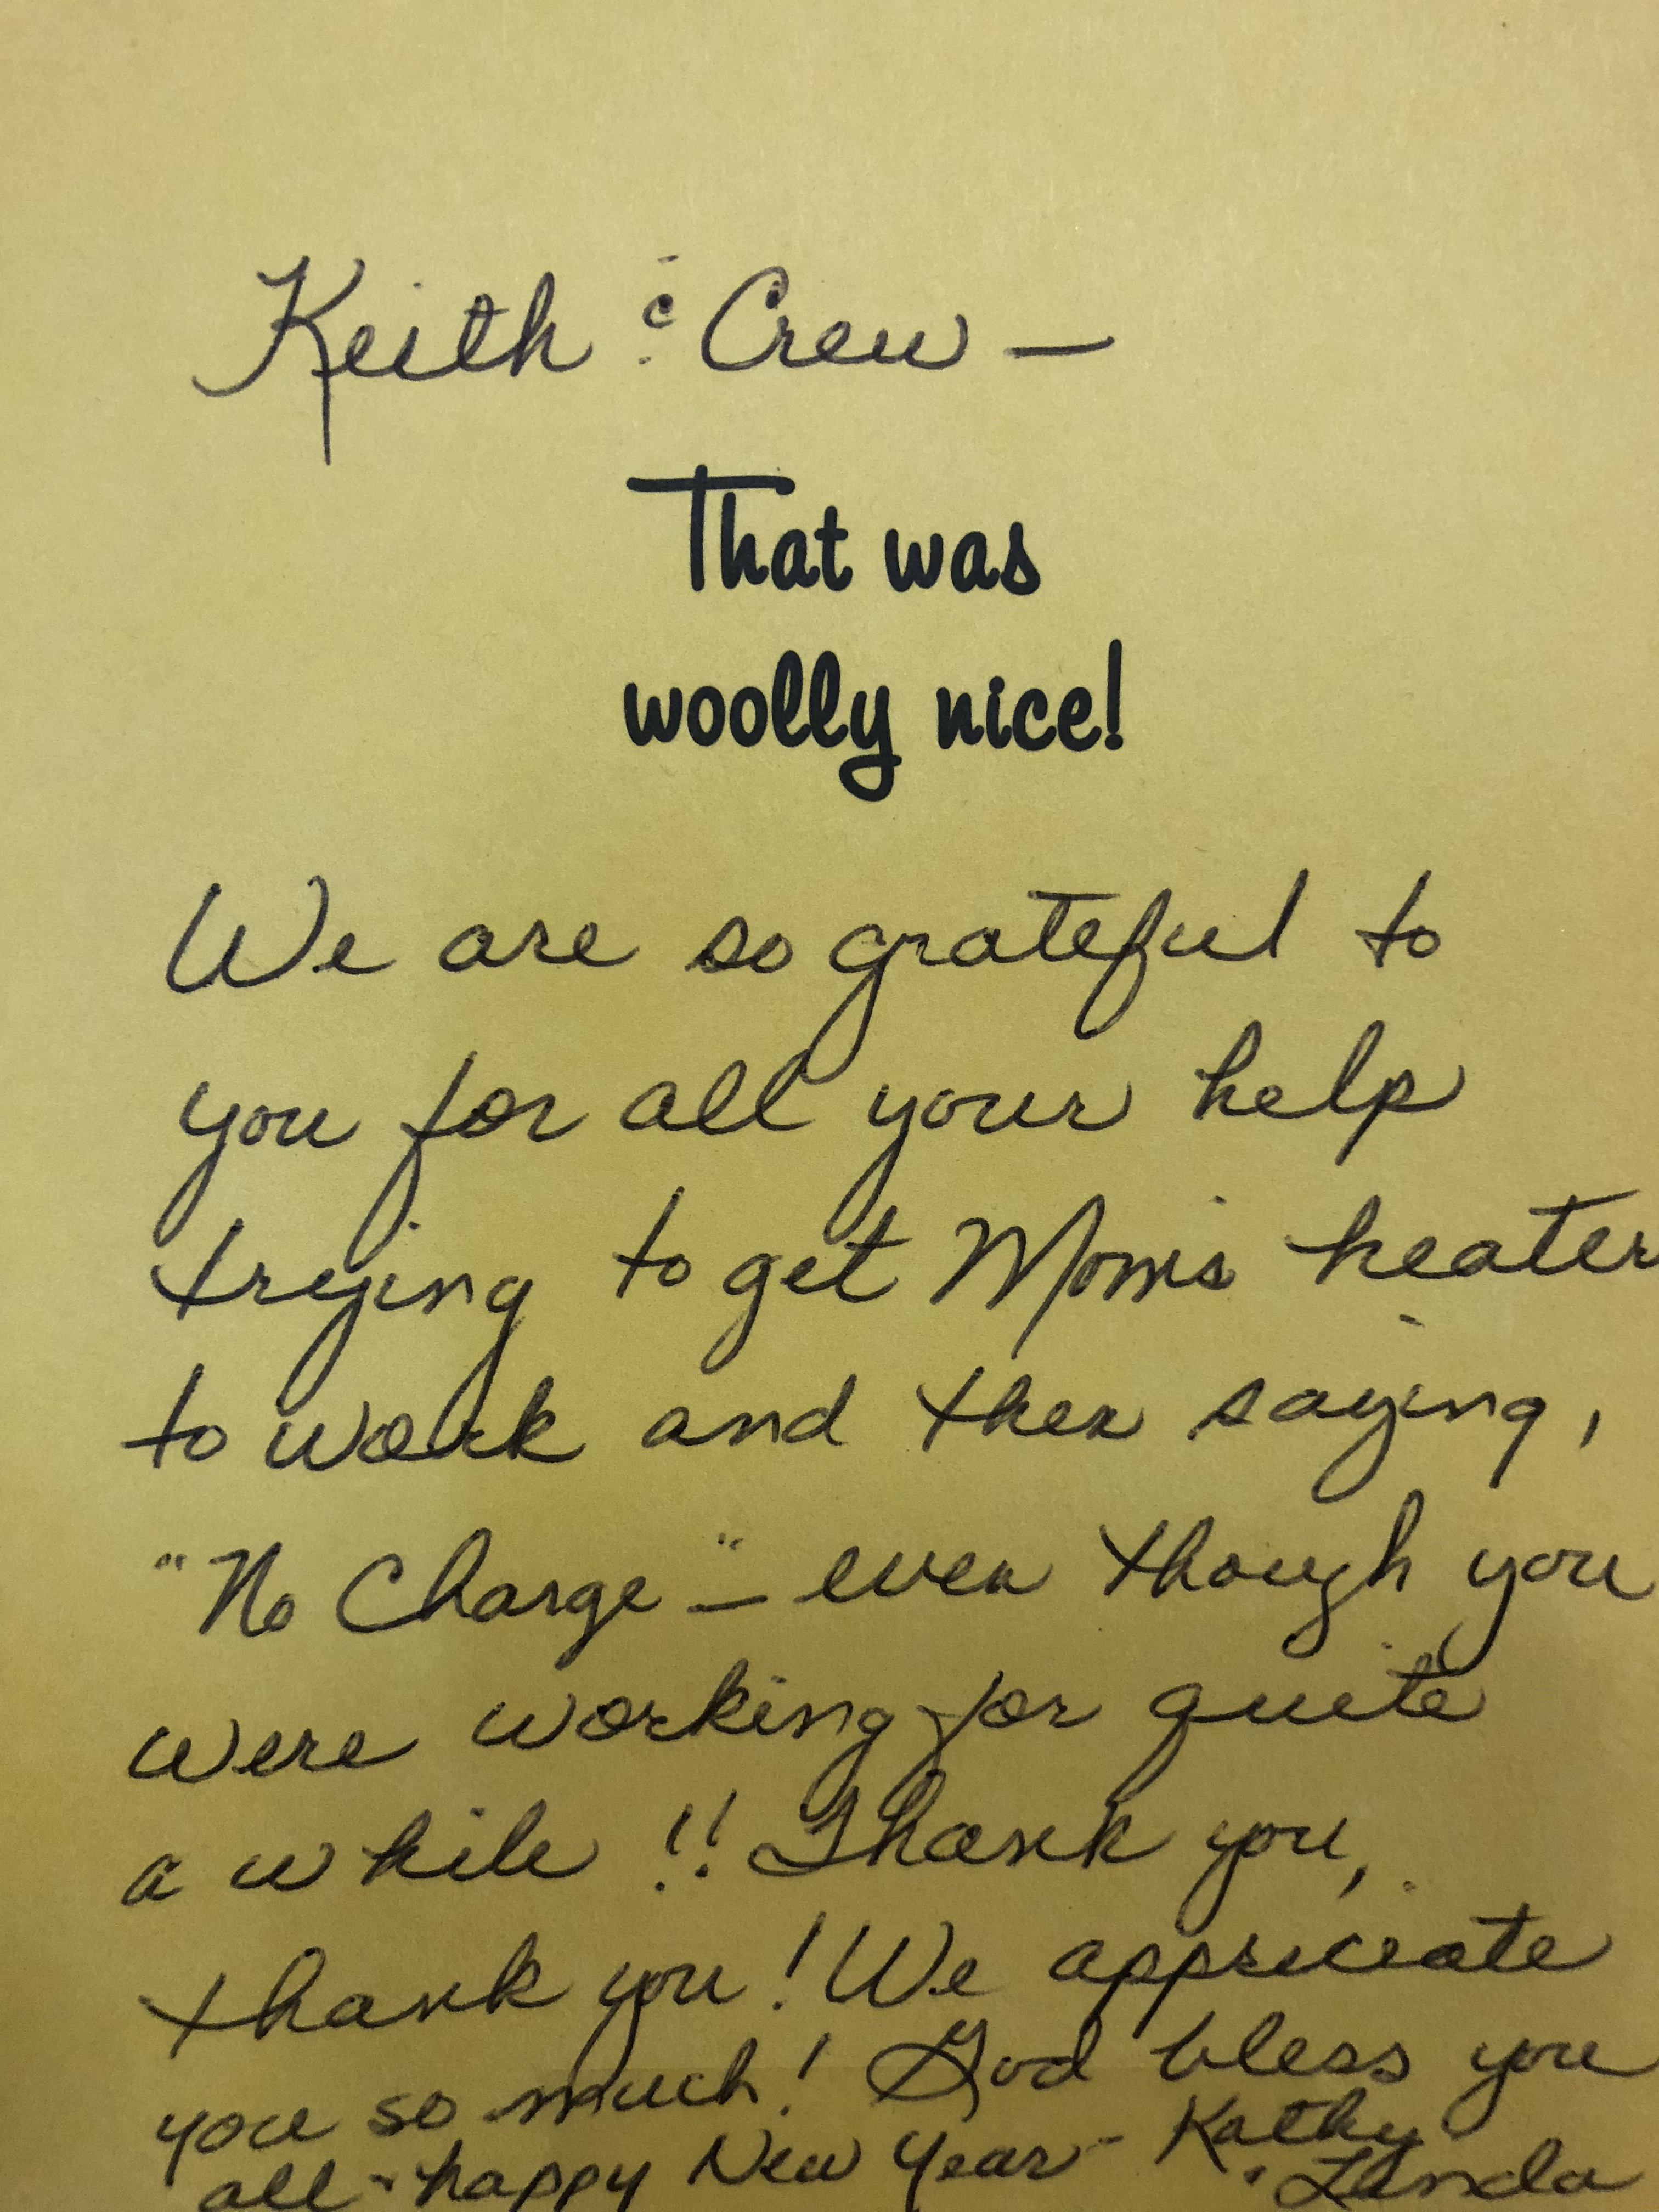 Keith & Crew —
That was
woolly nice!
We are so grateful to
you for all your help
trying to get Mom's heater
to work and then saying,
"No Charge" — even though you
were working for quite
a while!! Thank you,
thank you! We appreciate
you so much! God bless you
all - happy New Year - Kathy
& Linda